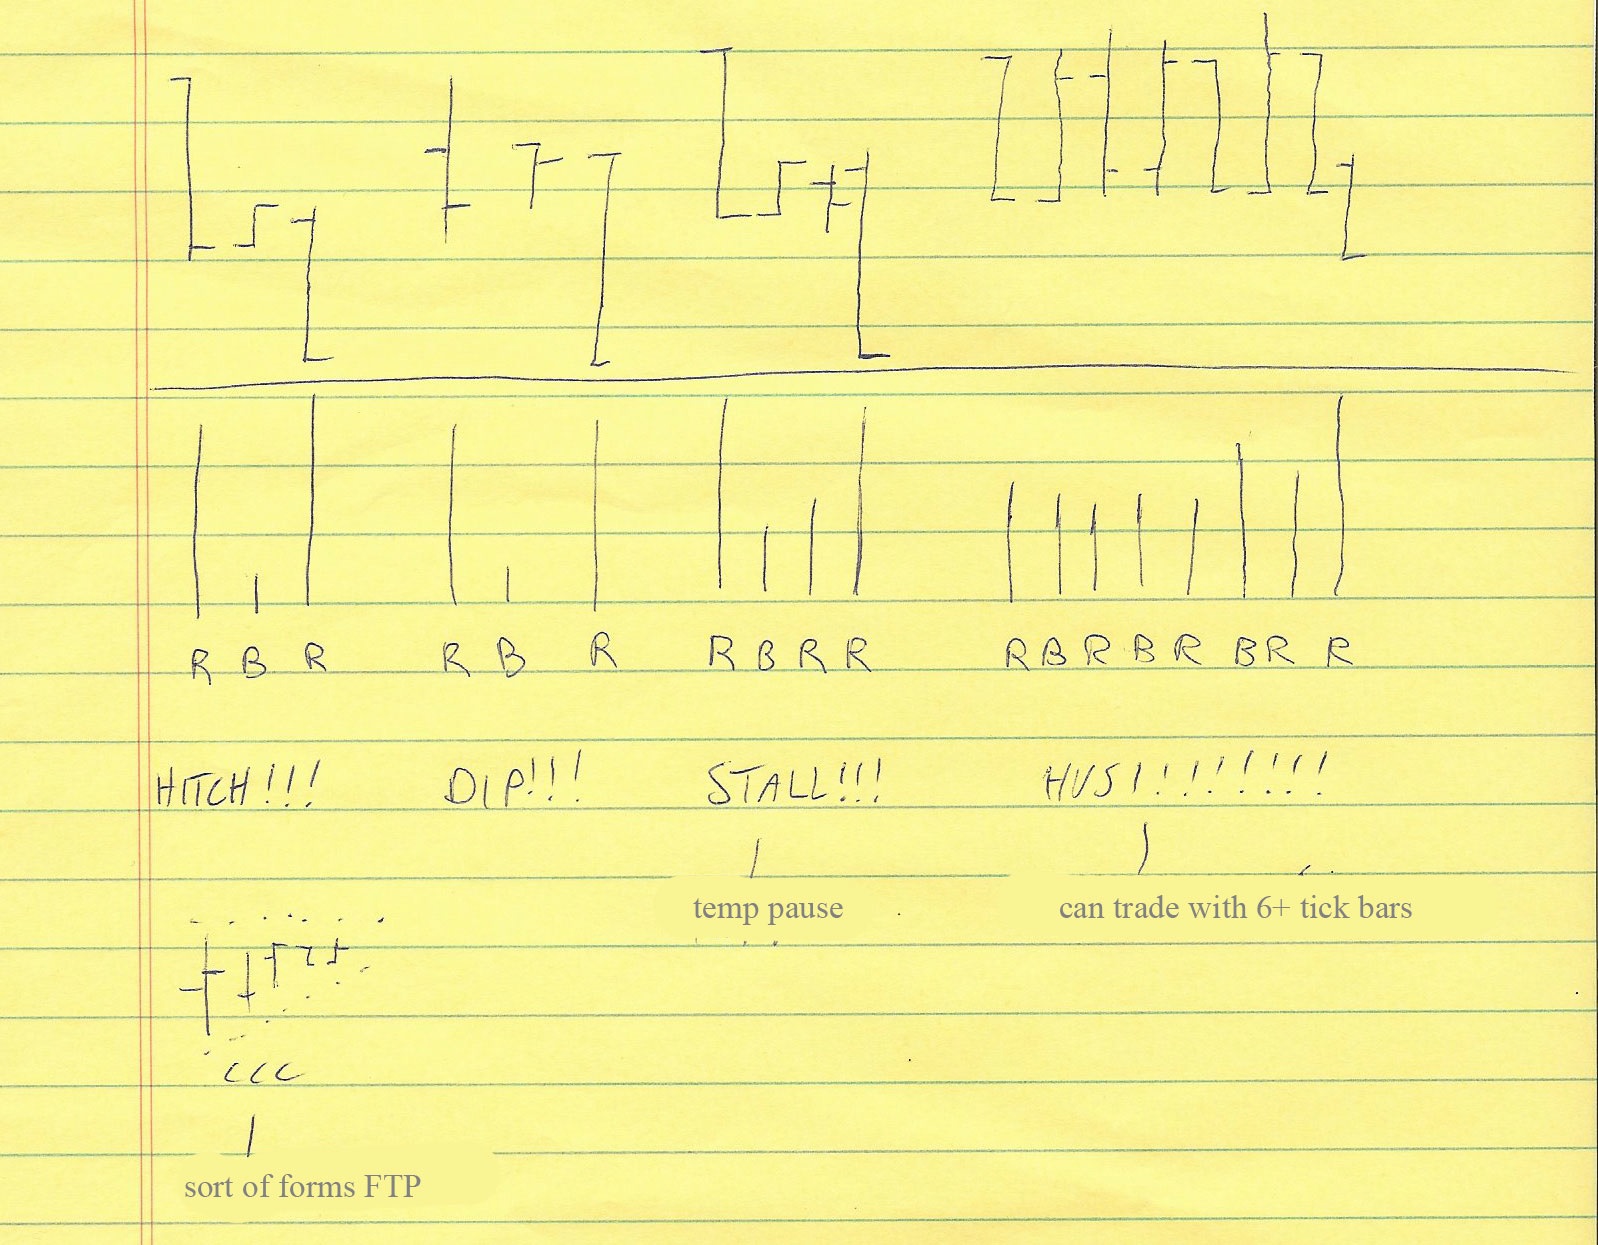 R B R R B R R B R R R B R B R B R R
HITCH!!! DIP!!! STALL!!! HUS!!!!!!!!
temp pause can trade with 6+ tick bars
CCC
sort of forms FTP